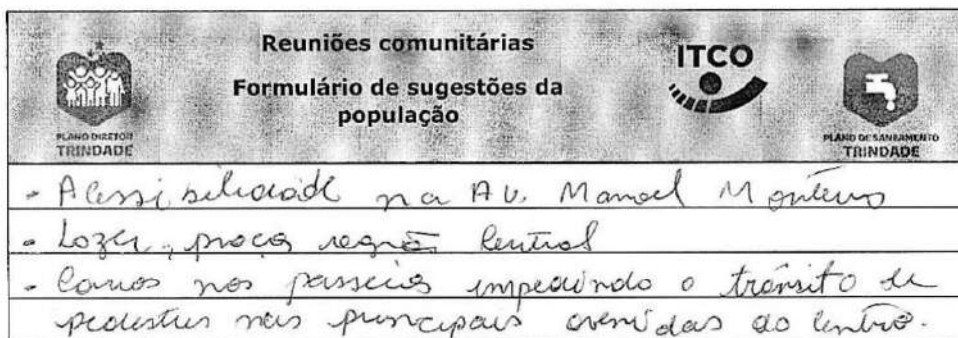 Reuniões comunitárias
Formulário de sugestões da
população
PLANO DIRETOR
TRINDADE
ITCO
PLANO DE SANEAMENTO
TRINDADE
- Acessibilidade na AV. Manoel Monteiro
- Lazer, praça região Central
- Carros nos passeios impedindo o trânsito de
pedestres nas principais avenidas do centro.